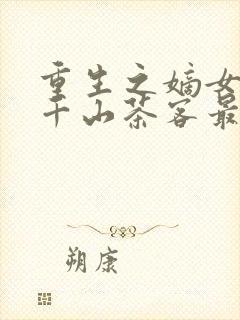 重生之嫡女
千山茶客最
朔康